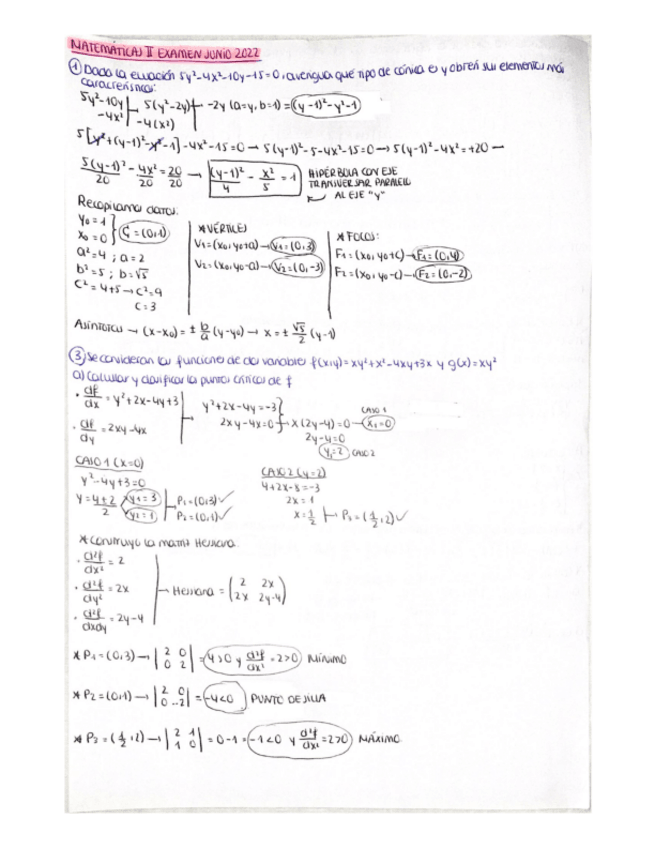 MATEMÁTICAS II EXAMEN JUNIO 2022
① Dada la ecuación 5y²-4x²-10y-15=0, averigua qué tipo de cónica es y obtén sus elementos más
característicos:
5y²-10y | 5(y²-2y) -2y (a=y, b=1) = (y-1)²-y²-1
-4x² | -4(x²)
5[y²+(y-1)²-y²-1]-4x²-15=0 → 5(y-1)²-5-4x²-15=0 → 5(y-1)²-4x²=+20 →
5(y-1)²/20 - 4x²/20 = 20/20 → (y-1)²/4 - x²/5 = 1 HIPÉRBOLA CON EJE
TRANSVERSAR PARALELO
AL EJE "y"
Recopilamos datos:
y₀=1
x₀=0 } C=(0,1)
a²=4 ; a=2
b²=5 ; b=√5
c²=4+5 → c²=9
c=3
* VÉRTICES
V₁=(x₀,y₀+a) → V₁=(0,3)
V₂=(x₀,y₀-a) → V₂=(0,-3)
* FOCOS:
F₁=(x₀,y₀+c) → F₁=(0,4)
F₂=(x₀,y₀-c) → F₂=(0,-2)
Asíntotas → (x-x₀)=± b/a (y-y₀) → x=± √5/2 (y-1)
③ Se consideran las funciones de dos variables f(x,y)=xy²+x²-4xy+3x y g(x)=xy²
a) Calcular y clasificar los puntos críticos de f
· df/dx = y²+2x-4y+3
· df/dy = 2xy-4x
y²+2x-4y=-3
2xy-4x=0 } → x(2y-4)=0 → x₁=0 CASO 1
2y-4=0
y₁=2 CASO 2
CASO 1 (x=0)
y²-4y+3=0
y=4±2/2 y₁=3 y₂=1 → P₁=(0,3) ✓
P₂=(0,1) ✓
CASO 2 (y=2)
4+2x-8=-3
2x=1
x=1/2 → P₃=(1/2,2) ✓
* Construyo la matriz Hessiana:
· d²f/dx² = 2
· d²f/dy² = 2x
· d²f/dxdy = 2y-4
→ Hessiana = (2 2x
2x 2y-4)
* P₁=(0,3) → |2 0
0 2| = 4>0 y d²f/dx² = 2>0 MÍNIMO
* P₂=(0,1) → |2 0
0 -2| = -4<0 PUNTO DE SILLA
* P₃=(1/2,2) → |2 1
1 0| = 0-1 = -1<0 y d²f/dx² = 2>0 MÁXIMO